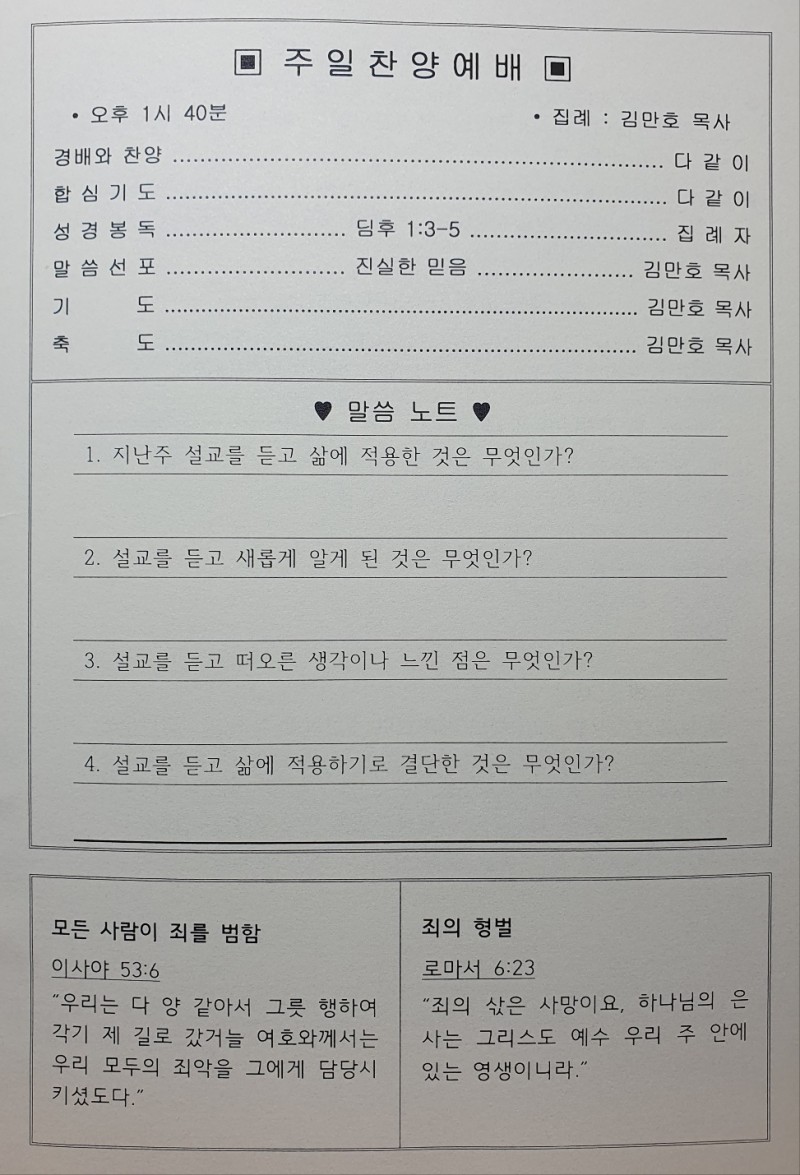 ▣ 주 일 찬 양 예 배 ▣
• 오후 1시 40분 • 집례 : 김만호 목사
경배와 찬양 ........................ 다 같 이
합 심 기 도 ........................ 다 같 이
성 경 봉 독 ............ 딤후 1:3-5 ............ 집 례 자
말 씀 선 포 ............ 진실한 믿음 ............ 김만호 목사
기 도 ........................ 김만호 목사
축 도 ........................ 김만호 목사
♥ 말씀 노트 ♥
1. 지난주 설교를 듣고 삶에 적용한 것은 무엇인가?
2. 설교를 듣고 새롭게 알게 된 것은 무엇인가?
3. 설교를 듣고 떠오른 생각이나 느낀 점은 무엇인가?
4. 설교를 듣고 삶에 적용하기로 결단한 것은 무엇인가?
모든 사람이 죄를 범함
이사야 53:6
"우리는 다 양 같아서 그릇 행하여
각기 제 길로 갔거늘 여호와께서는
우리 모두의 죄악을 그에게 담당시
키셨도다."
죄의 형벌
로마서 6:23
"죄의 삯은 사망이요, 하나님의 은
사는 그리스도 예수 우리 주 안에
있는 영생이니라."